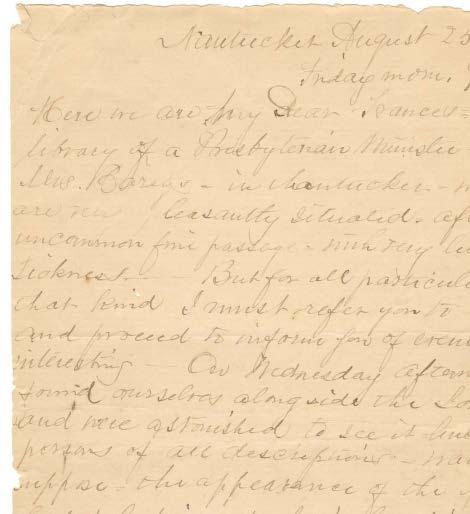 Nantucket August 25
Friday morn.
Here we are my Dear Frances
library of a Presbyterian Minister
Mrs. - in Nantucket -
are very pleasantly situated - af
uncommon fine passage - with very
sickness - But for all particula
that kind I must refer you to
and proceed to inform you of even
interesting - On Wednesday aftern
found ourselves alongside the
and were astonished to see it
persons of all descriptions -
suppose - the appearance of the